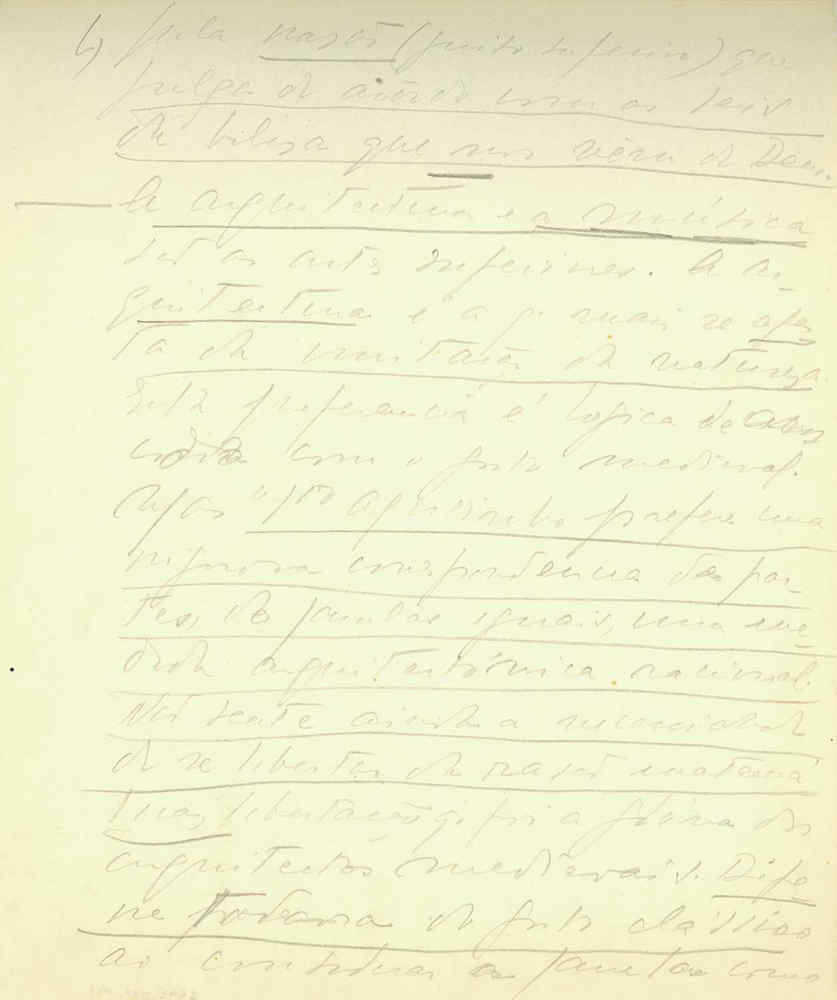 b) pela razão (juizo superior) que
julga de acôrdo com as leis
da beleza que nos vêm de Deus.
A arquitectura e a música
são as artes superiores. A ar-
quitectura é a q. mais se afas
ta da imitação da natureza.
Esta preferencia é logica de acor
do com o gosto medieval.
Mas Stº Agostinho prefere uma
rigorosa correspondencia das par-
tes, de janelas iguais, uma me-
dida arquitectónica racional.
Não sente ainda a necessidade
de se libertar da razão matemá
libertação q. foi a glória dos
arquitectos medievais. Dife-
re todavia do gosto clássico
ao considerar as janelas como